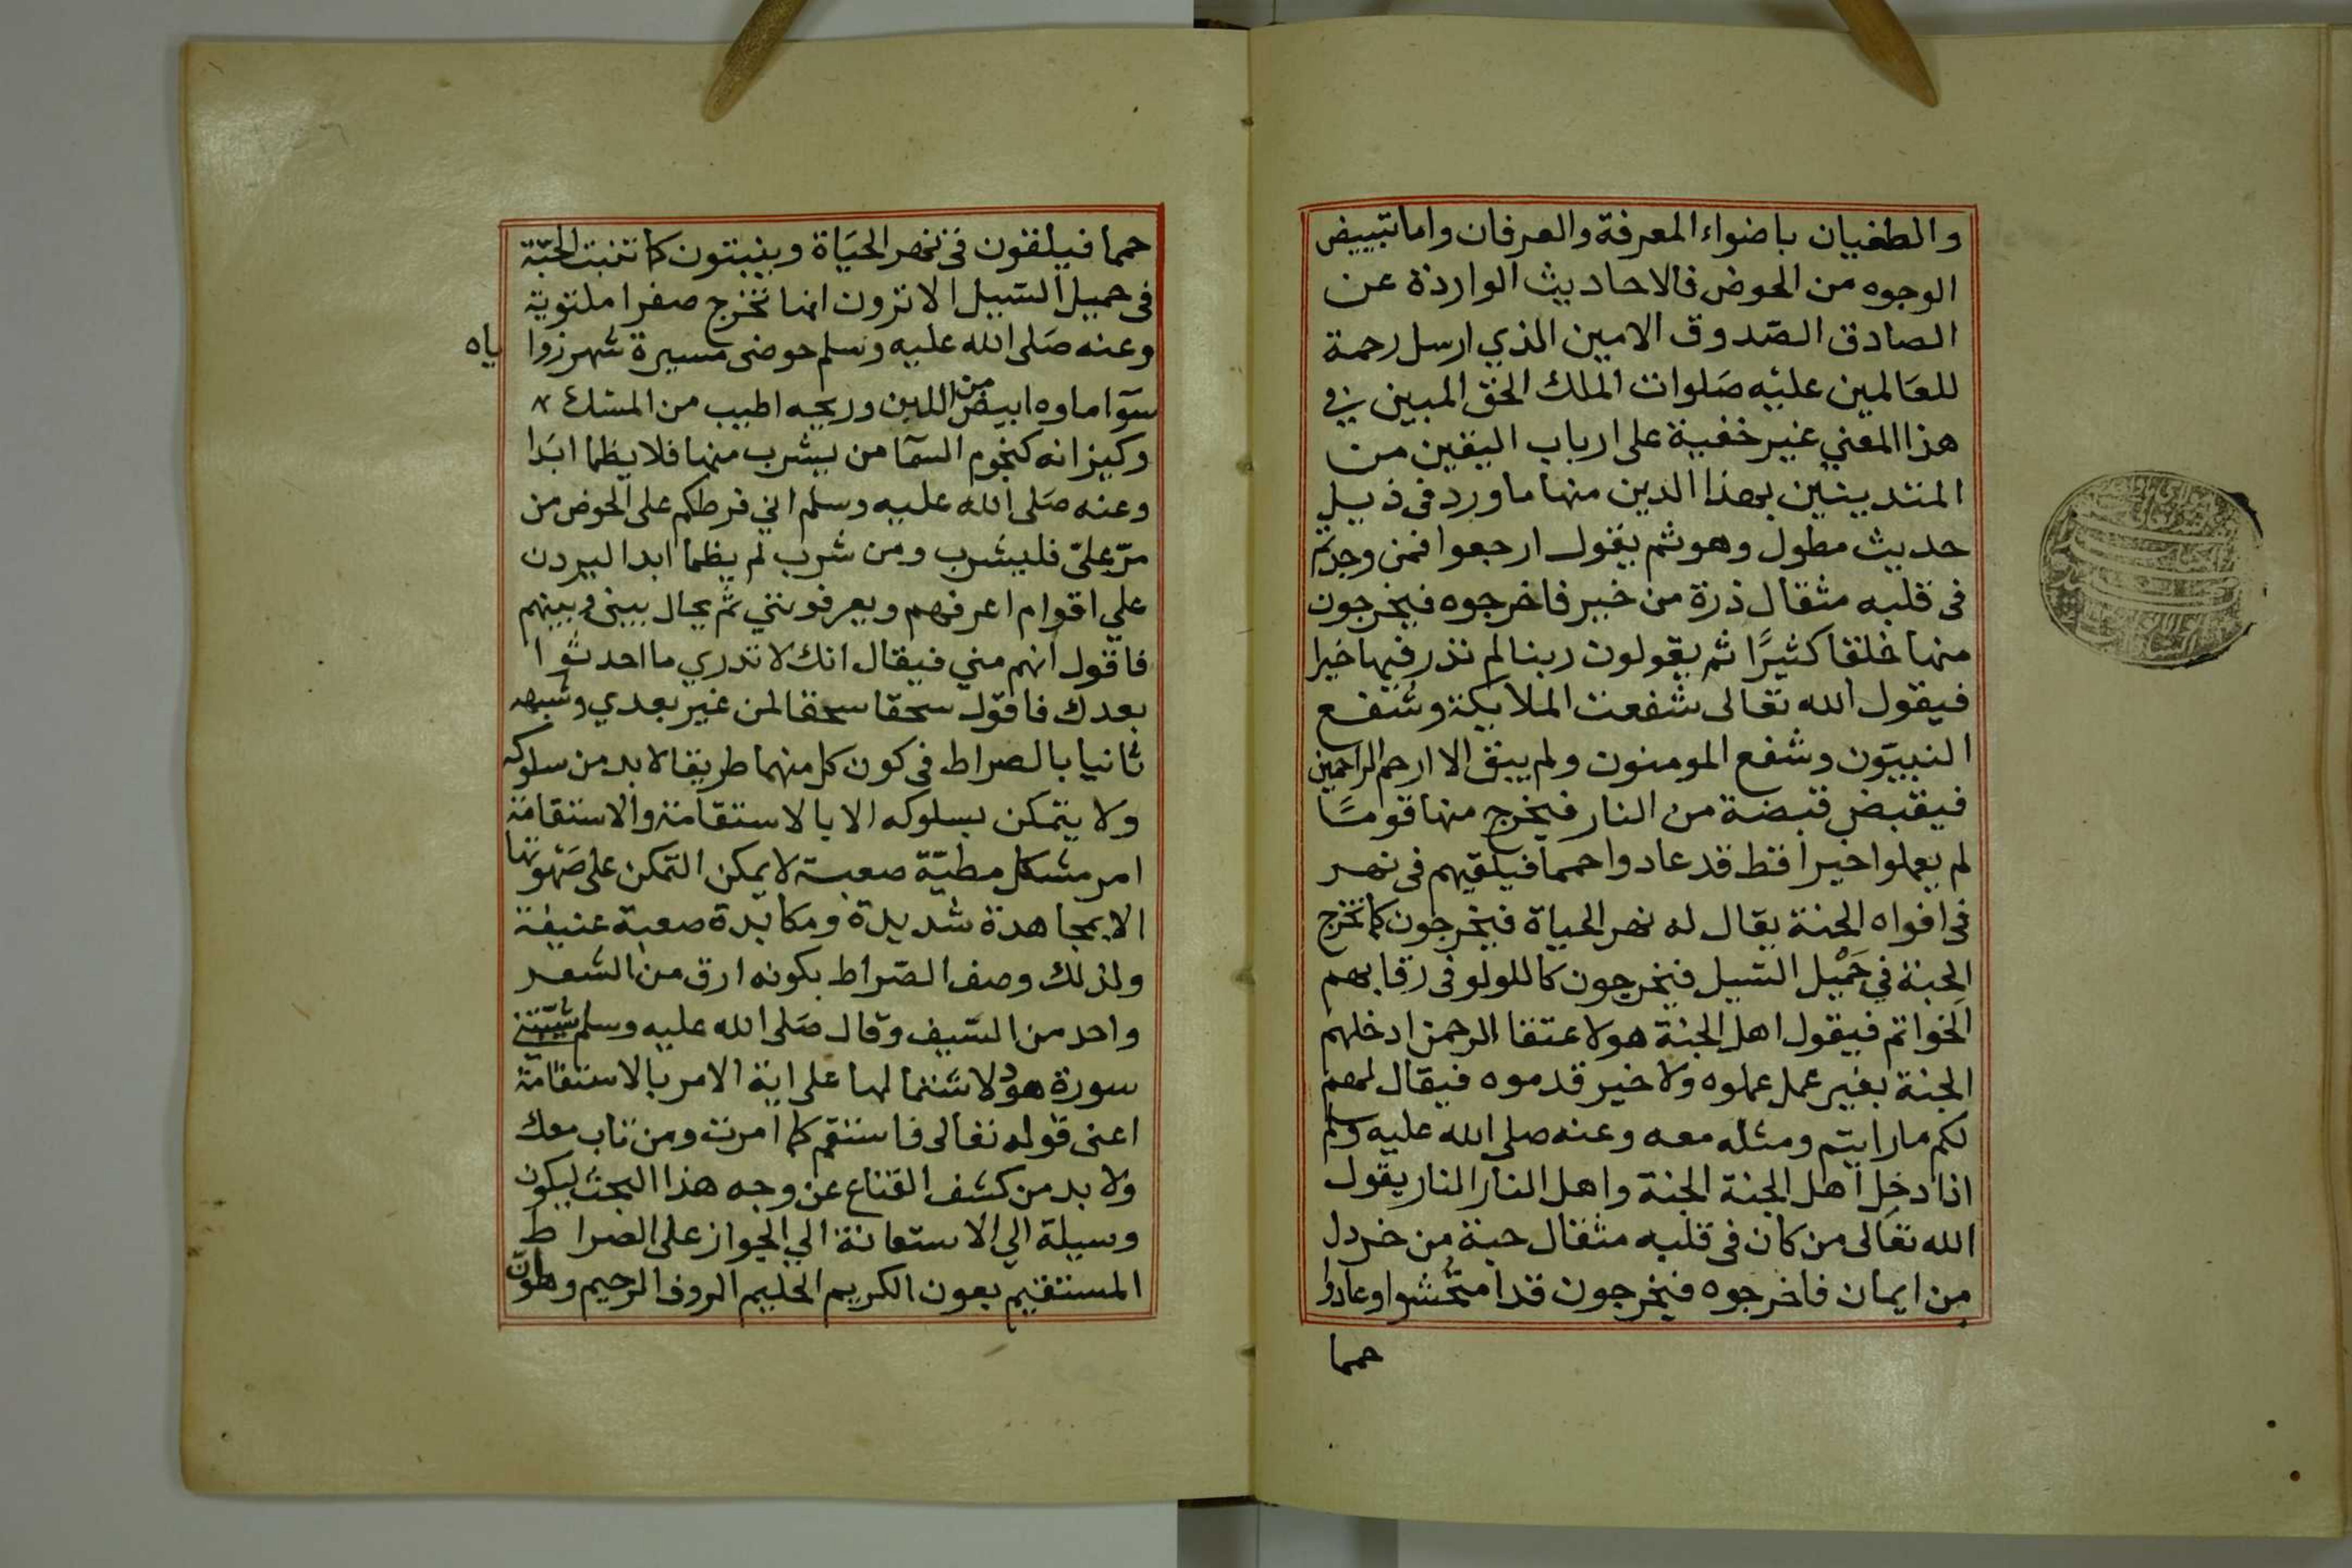 والطغيان باضواء المعرفة والعرفان واما تبييض
الوجوه من الحوض فالاحاديث الواردة عن
الصادق الصّدوق الامين الذي ارسل رحمة
للعَالمين عليْه صَلوات المَلك الحق المبين في
هذا المعني غير خفية على ارباب اليقين من
المتدينين بهذا الدين منها ما ورد فى ذيل
حديث مطول وهو ثم يقول ارجعوا فمن وجدتم
فى قلبه مثقال ذرة من خير فاخرجوه فيخرجون
منها خلقا كثيرًا ثم يقولون ربنا لم نذر فيها خيرا
فيقول الله تعالى شفعت الملايكة وشفع
النبيّون وشفع المومنون ولم يبق الا ارحم الراحمين
فيقبض قبضة من النار فيخرج منها قومًا
لم يعملوا خيرا قط قد عادوا حمما فيلقيهم فى نهر
فى افواه الجنة يقال له نهر الحياة فيخرجون كما تخرج
الحِبة في حَمْيل السّيل فيخرجون كاللولو فى رقابهم
الخواتم فيقول اهل الجنة هولا عتقا الرحمن ادخلهم
الجنة بغير عمل عملوه ولا خير قدموه فيقال لهم
لكم ما رايتم ومثله معه وعنه صلى الله عليه وسلم
اذا دخل اهل الجنة الجنة واهل النار النار يقول
الله تعَالى من كان فى قلبه مثقال حبة من خردل
من ايمان فاخرجوه فيخرجون قد امتُحشوا وعادوا
حمما
حمما فيلقون فى نهر الحيَاة وينبتون كما تنبت الحَبّة
فى حميل السّيل الا ترون انها تخرج صفرا ملتوية
وعنه صَلى الله عليه وسلم حوضى مسيرة شهر زوا
ياه
سوآ ماوه ابيض من اللبن وريحه اطيب من المسك
وكيزانه كنجوم السمآ من يشرب منها فلا يظما ابدَا
وعنه صَلى الله عليه وسلم اني فرطكم على الحوض من
مرّ علىّ فليشرب ومن شرب لم يظما ابدا ليردن
علي اقوام اعرفهم ويعرفونني ثم يحال بينى وبينهم
فاقول انهم مني فيقال انك لا تدري ما احدثوا
بعدك فاقول سحقا سحقا لمن غير بعدي وشبهه
ثانيا بالصراط فى كون كل منهما طريقا لا بد من سلوكه
ولا يتمكن بسلوكه الا بالاستقامة والاستقامة
امر مشكل مطيّة صعبة لا يمكن التمكن على صَهْوتها
الا بمجاهدة شديدة ومكابدة صعبة عنيفة
ولذلك وصف الصّراط بكونه ارق من الشعر
واحد من السّيف وقال صَلى الله عليه وسلم شيّبتني
سورة هود لاشتمالها على اية الامر بالاستقامة
اعنى قوله تعالى فاستقم كما امرت ومن تاب معك
ولا بد من كشف القناع عن وجه هذا البحث ليكون
وسيلة الي الاستعانة الي الجواز على الصراط
المستقيم بعون الكريم الحليم الروف الرحيم وهو انّ